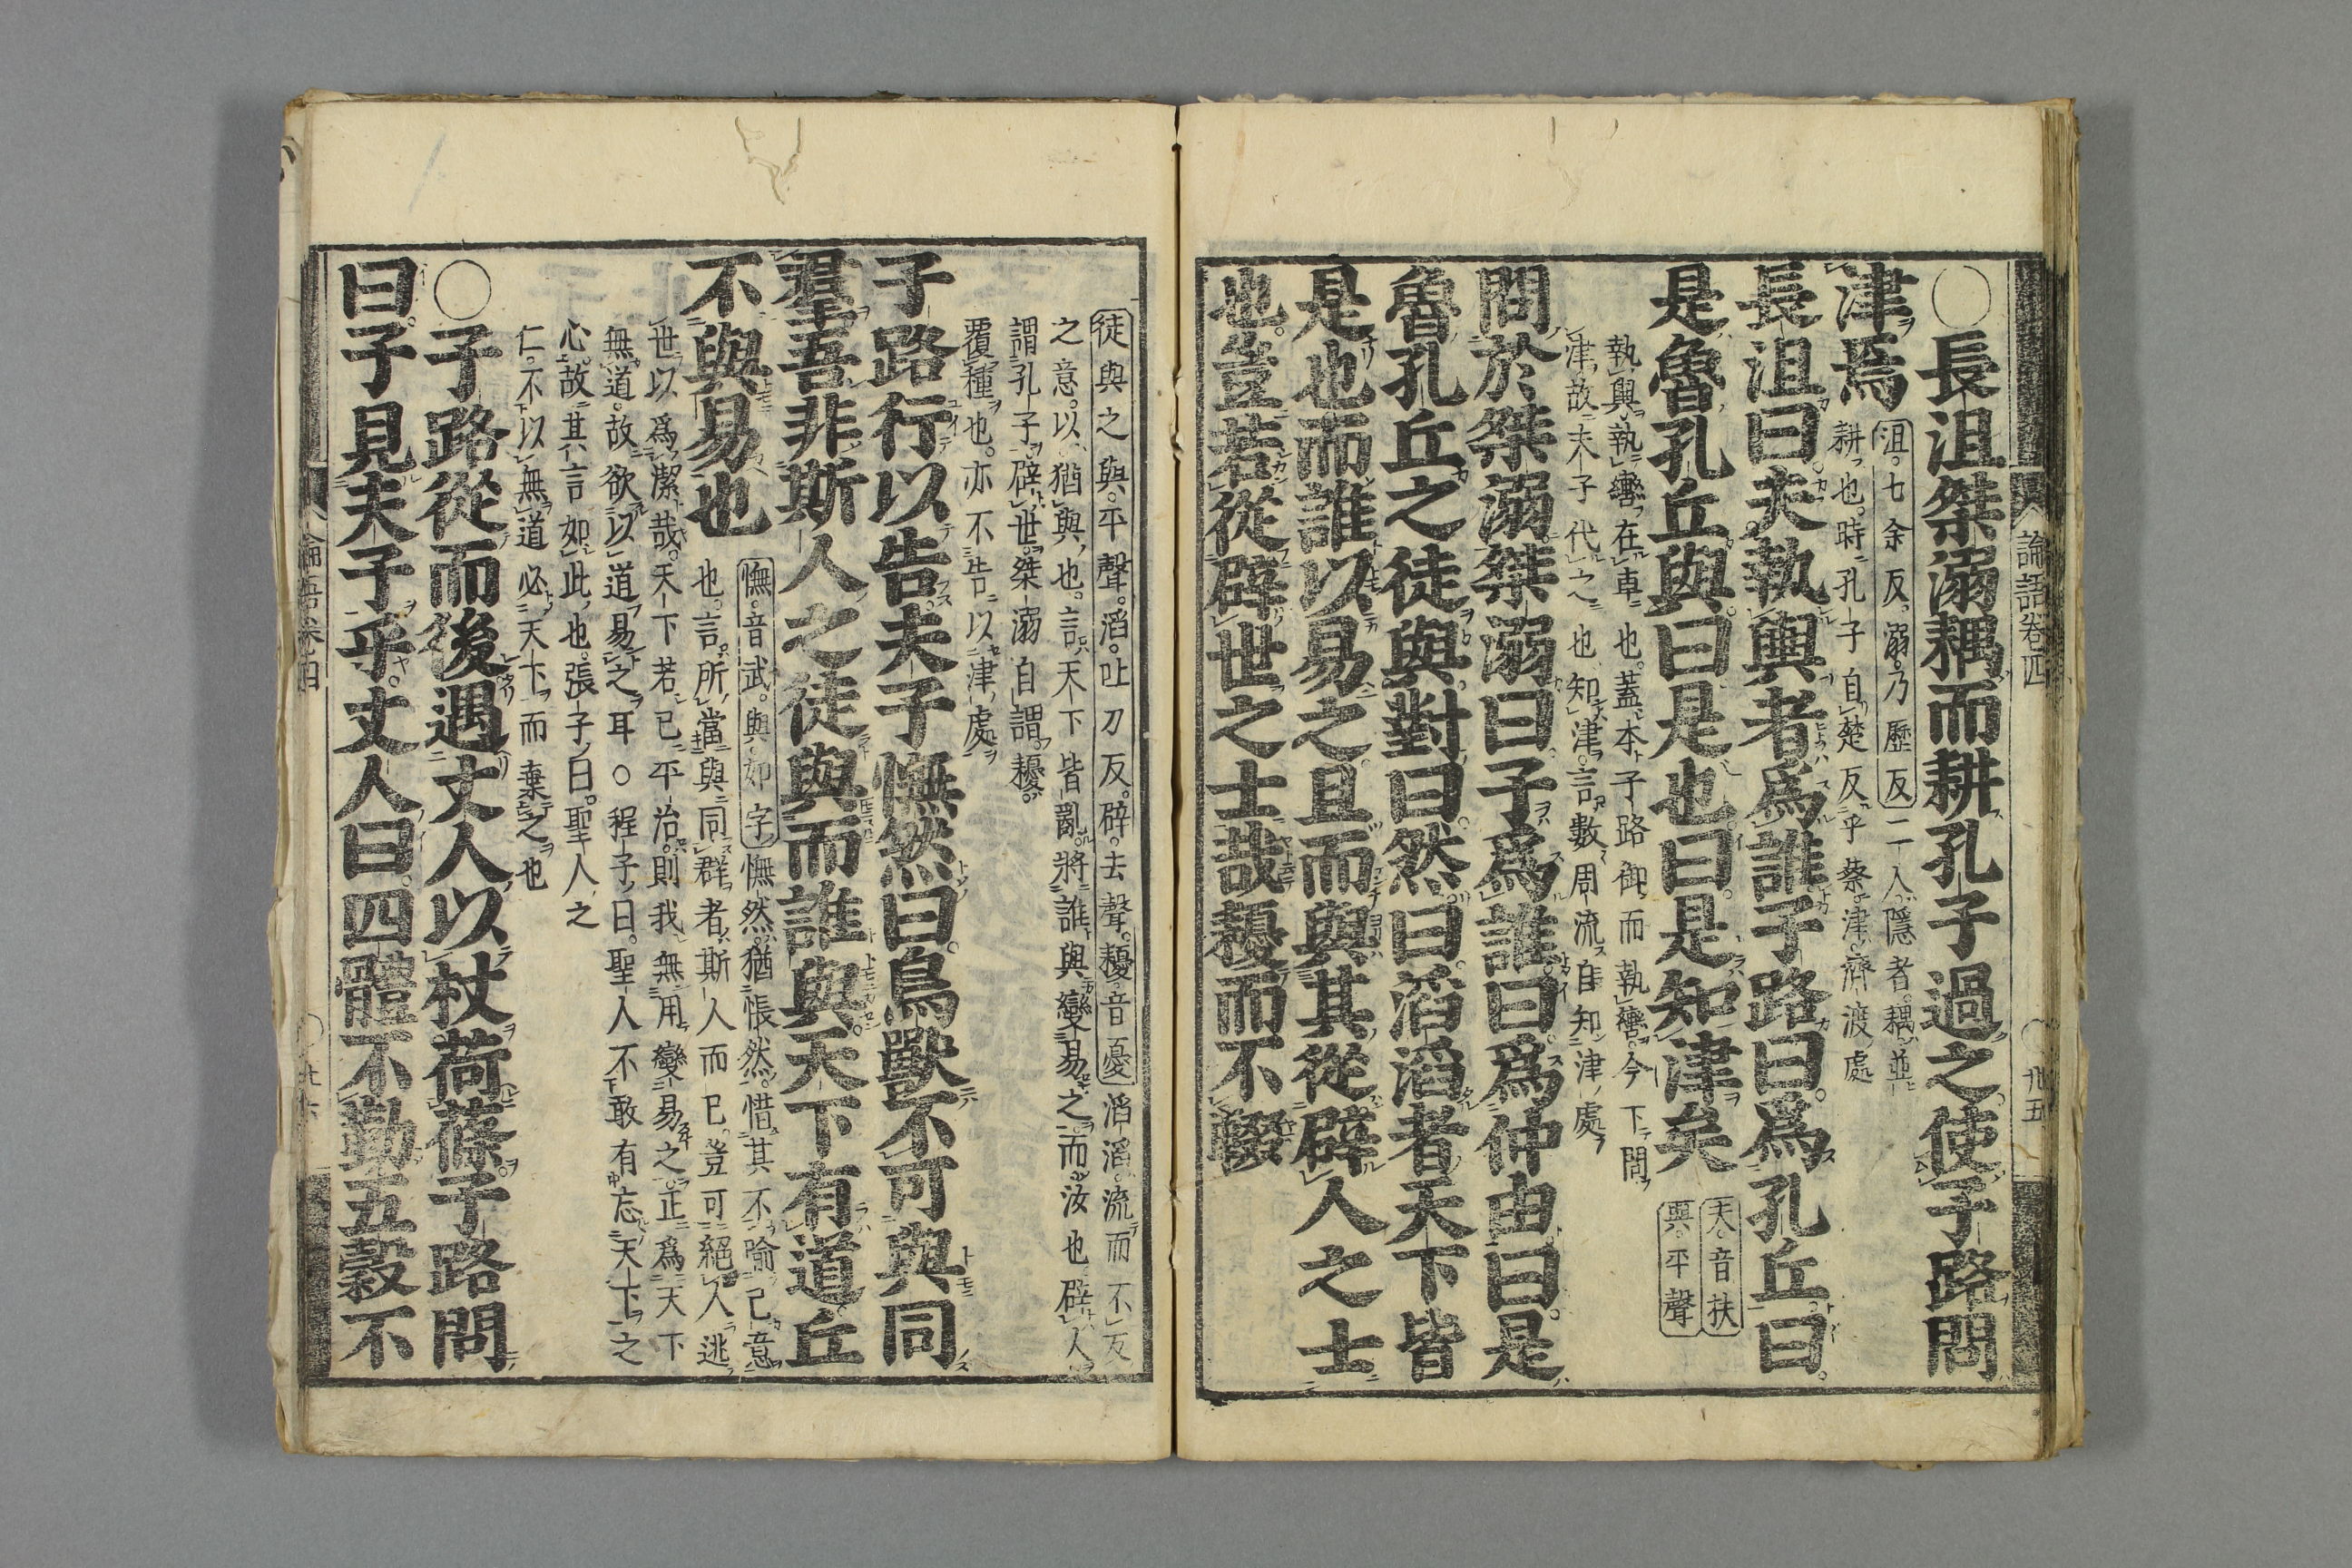 論語卷四
卅五
○長沮桀溺耦而耕孔子過之使子路問
津焉
沮七余反溺乃歷反二人隱者耦並
耕也時孔子自楚反乎蔡津濟渡處
長沮曰夫執輿者爲誰子路曰爲孔丘曰
是魯孔丘與曰是也曰是知津矣
夫音扶
與平聲
執輿執轡在車也蓋本子路御而執轡今下問
津故夫子代之也知津言數周流自知津處
問於桀溺桀溺曰子爲誰曰爲仲由曰是
魯孔丘之徒與對曰然曰滔滔者天下皆
是也而誰以易之且而與其從辟人之士
也豈若從辟世之士哉耰而不輟
徒與之與平聲滔吐刀反辟去聲耰音憂滔滔流而不反
之意以猶與也言天下皆亂將誰與變易之而汝也辟人
謂孔子辟世桀溺自謂耰
覆種也亦不告以津處
子路行以告夫子憮然曰鳥獸不可與同
羣吾非斯人之徒與而誰與天下有道丘
不與易也
憮音武與如字憮然猶悵然惜其不喻己意
也言所當與同群者斯人而已豈可絕人逃
世以爲潔哉天下若已平治則我無用變易之正爲天下
無道故欲以道易之耳○程子曰聖人不敢有忘天下之
心故其言如此也張子曰聖人之
仁不以無道必天下而棄之也
○子路從而後遇丈人以杖荷蓧子路問
曰子見夫子乎丈人曰四體不勤五穀不